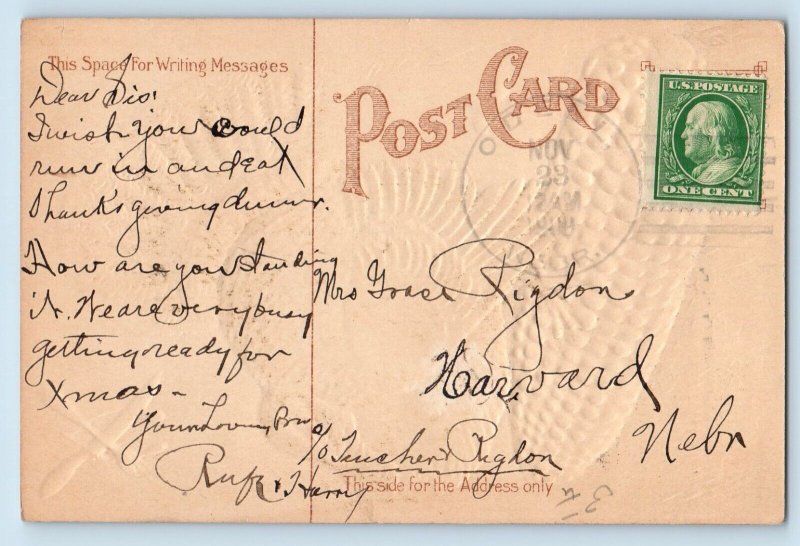 This Space For Writing Messages
POST CARD
U.S. POSTAGE
ONE CENT
NOV
23
Dear Sis!
I wish you could
run in and eat
Thanksgiving dinner.
How are you standing
it. We are very busy
getting ready for
Xmas –
Your Loving Bro
Rufe & Harry
Mrs Grace Rigdon
Harvard
Nebr
c/o Teucher & Rigdon
This side for the Address only